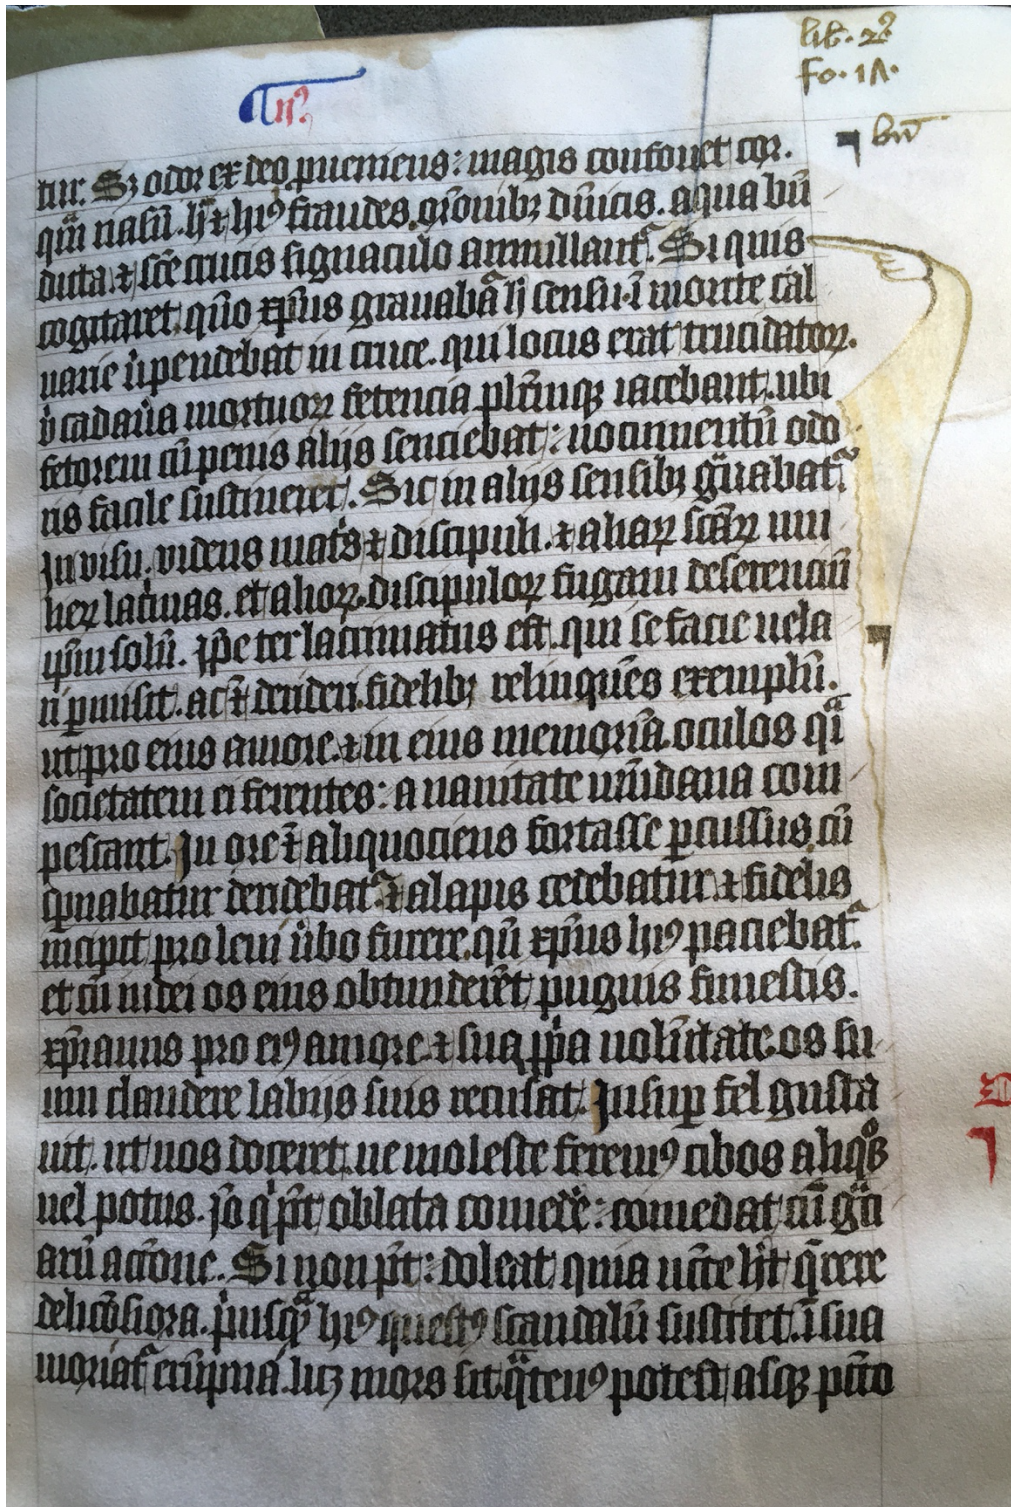 lib. 2º
fo. 17.
II⁹
bn̄
tur. Sꝫ odor ex deo ꝓueniens: magis confouet cor.
qͣm nasū. hͣ ⁊ hiꝰ fraudes. orōnibꝫ dn̄icis. aqua bn̄
dicta. ⁊ sc̄e crucis signaculo annullant᷑. Si quis
cogitaret. quō xp̄us grauabat᷑ ī sensu. ī monte cal
uarie ꝺ̄ pendebat in cruce. qui locus erat trucidatoꝝ.
⁊ cadaũa mortuoꝝ fetencia plr̄imqꝫ iacebant. ubi
fetorem cū penis alijs senciebat: nocumentū odo
ris facile sustineret. Sic in alijs sensibꝫ gͣuabat᷑.
In visu. videns mat̕s ⁊ discipuli. ⁊ aliaꝝ sc̄aꝝ mu
lieꝝ lac̕mas. et alioꝝ discipuloꝝ fugam deserenciū
ip̄m solū. Ip̄e ter lacrimatus est. qui se facie uela
ri ꝑmisit. ac ⁊ derideri. fidelibꝫ relinquēs exemplū.
ut pro eius amore. ⁊ in eius memoriā. oculos qͣi
societatem ei ferentes: a uanitate mūdana com
pescant. In ore ⁊ aliquociens fortasse ꝑcussus. cū
ip̄nabatur deridebat᷑. ⁊ alapis cedebatur. ⁊ fidelis
incipit pro leui ũbo furere. qn̄ xp̄us hiꝰ paciebat᷑.
et cū iudei os eius obtunderēt pugnis funestis.
xp̄ianus pro eiꝰ amore. ⁊ sua ꝓp̕a uolūtate. os su
um claudere labijs suis recusat. Insuꝑ fel gusta
uit. ut nos doceret. ne moleste feremꝰ cibos aliqͦs
uel potus. Iō qͥ pn̄t oblata comedē: comedat cū gͣci
arū actōne. Si non pn̄t: doleat quia ncc̄e hn̄t q̄rere
delicōsiora. p̕usqͣ hiꝰ questꝰ scandalū sustitet. ī sua
moriat᷑ erūpna. licꝫ mors sit qͣtenꝰ potest asqꝫ pctō